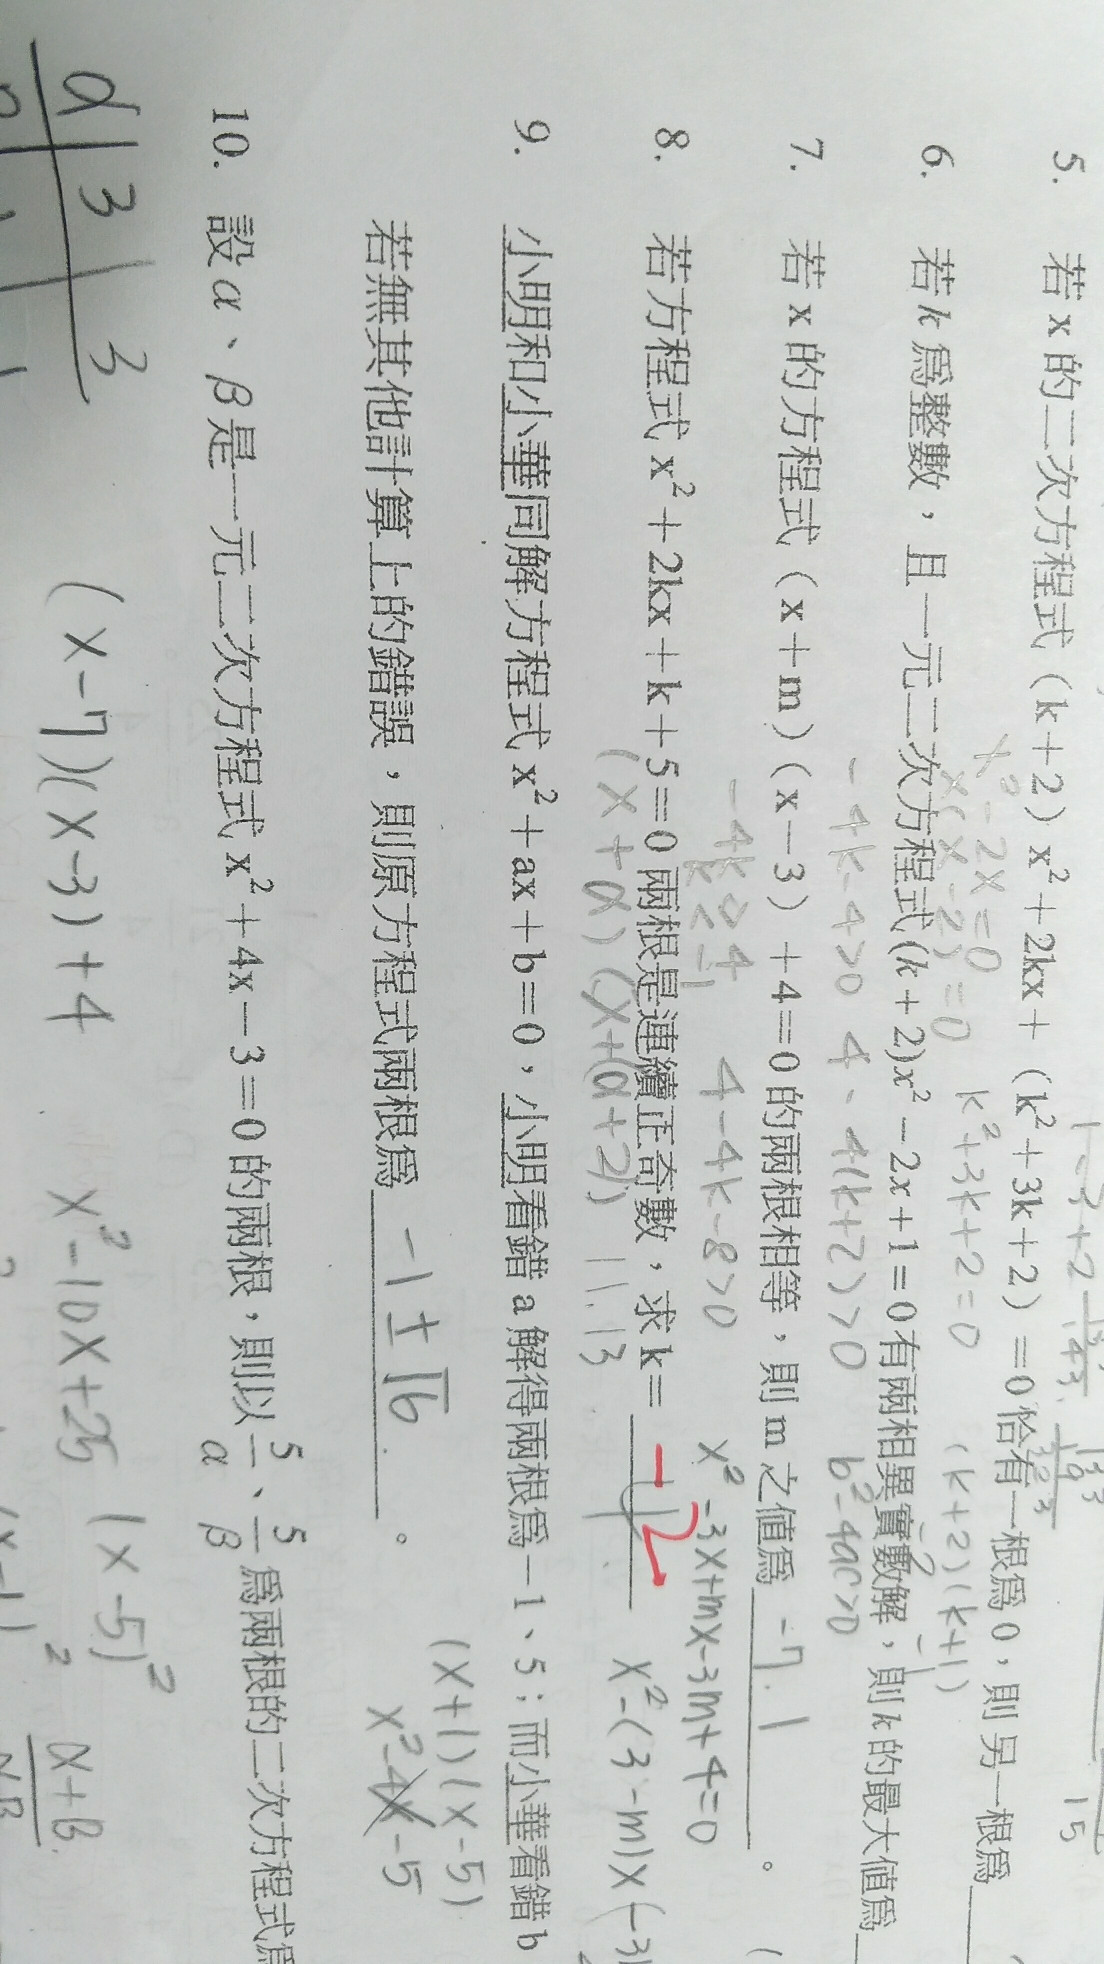 5. 若 x 的二次方程式（k＋2）x²＋2kx＋（k²＋3k＋2）＝0 恰有一根為 0，則另一根為
x²-2x=0
x(x-2)=0
k²+3k+2=0
(k+2)(k+1)
-2 -1
15
6. 若 k 為整數，且一元二次方程式(k＋2)x²－2x＋1＝0 有兩相異實數解，則 k 的最大值為
-4k-4>0
4-4(k+2)>0
b²-4ac>0
-4k>4
k<-1
4-4k-8>0
7. 若 x 的方程式（x＋m）（x－3）＋4＝0 的兩根相等，則 m 之值為 -7.1。
x²-3x+mx-3m+4=0
x²-(3-m)x(-3
8. 若方程式 x²＋2kx＋k＋5＝0 兩根是連續正奇數，求 k＝ -2
(x+α)(x+(α+2))
11.13
9. 小明和小華同解方程式 x²＋ax＋b＝0，小明看錯 a 解得兩根為－1、5；而小華看錯 b
(x+1)(x-5)
若無其他計算上的錯誤，則原方程式兩根為 -1±√6。
x²-4x-5
10. 設 α、β 是一元二次方程式 x²＋4x－3＝0 的兩根，則以 5/α、5/β 為兩根的二次方程式為
α 3 3
(x-7)(x-3)+4
x²-10x+25
(x-5)²
α+β
αβ